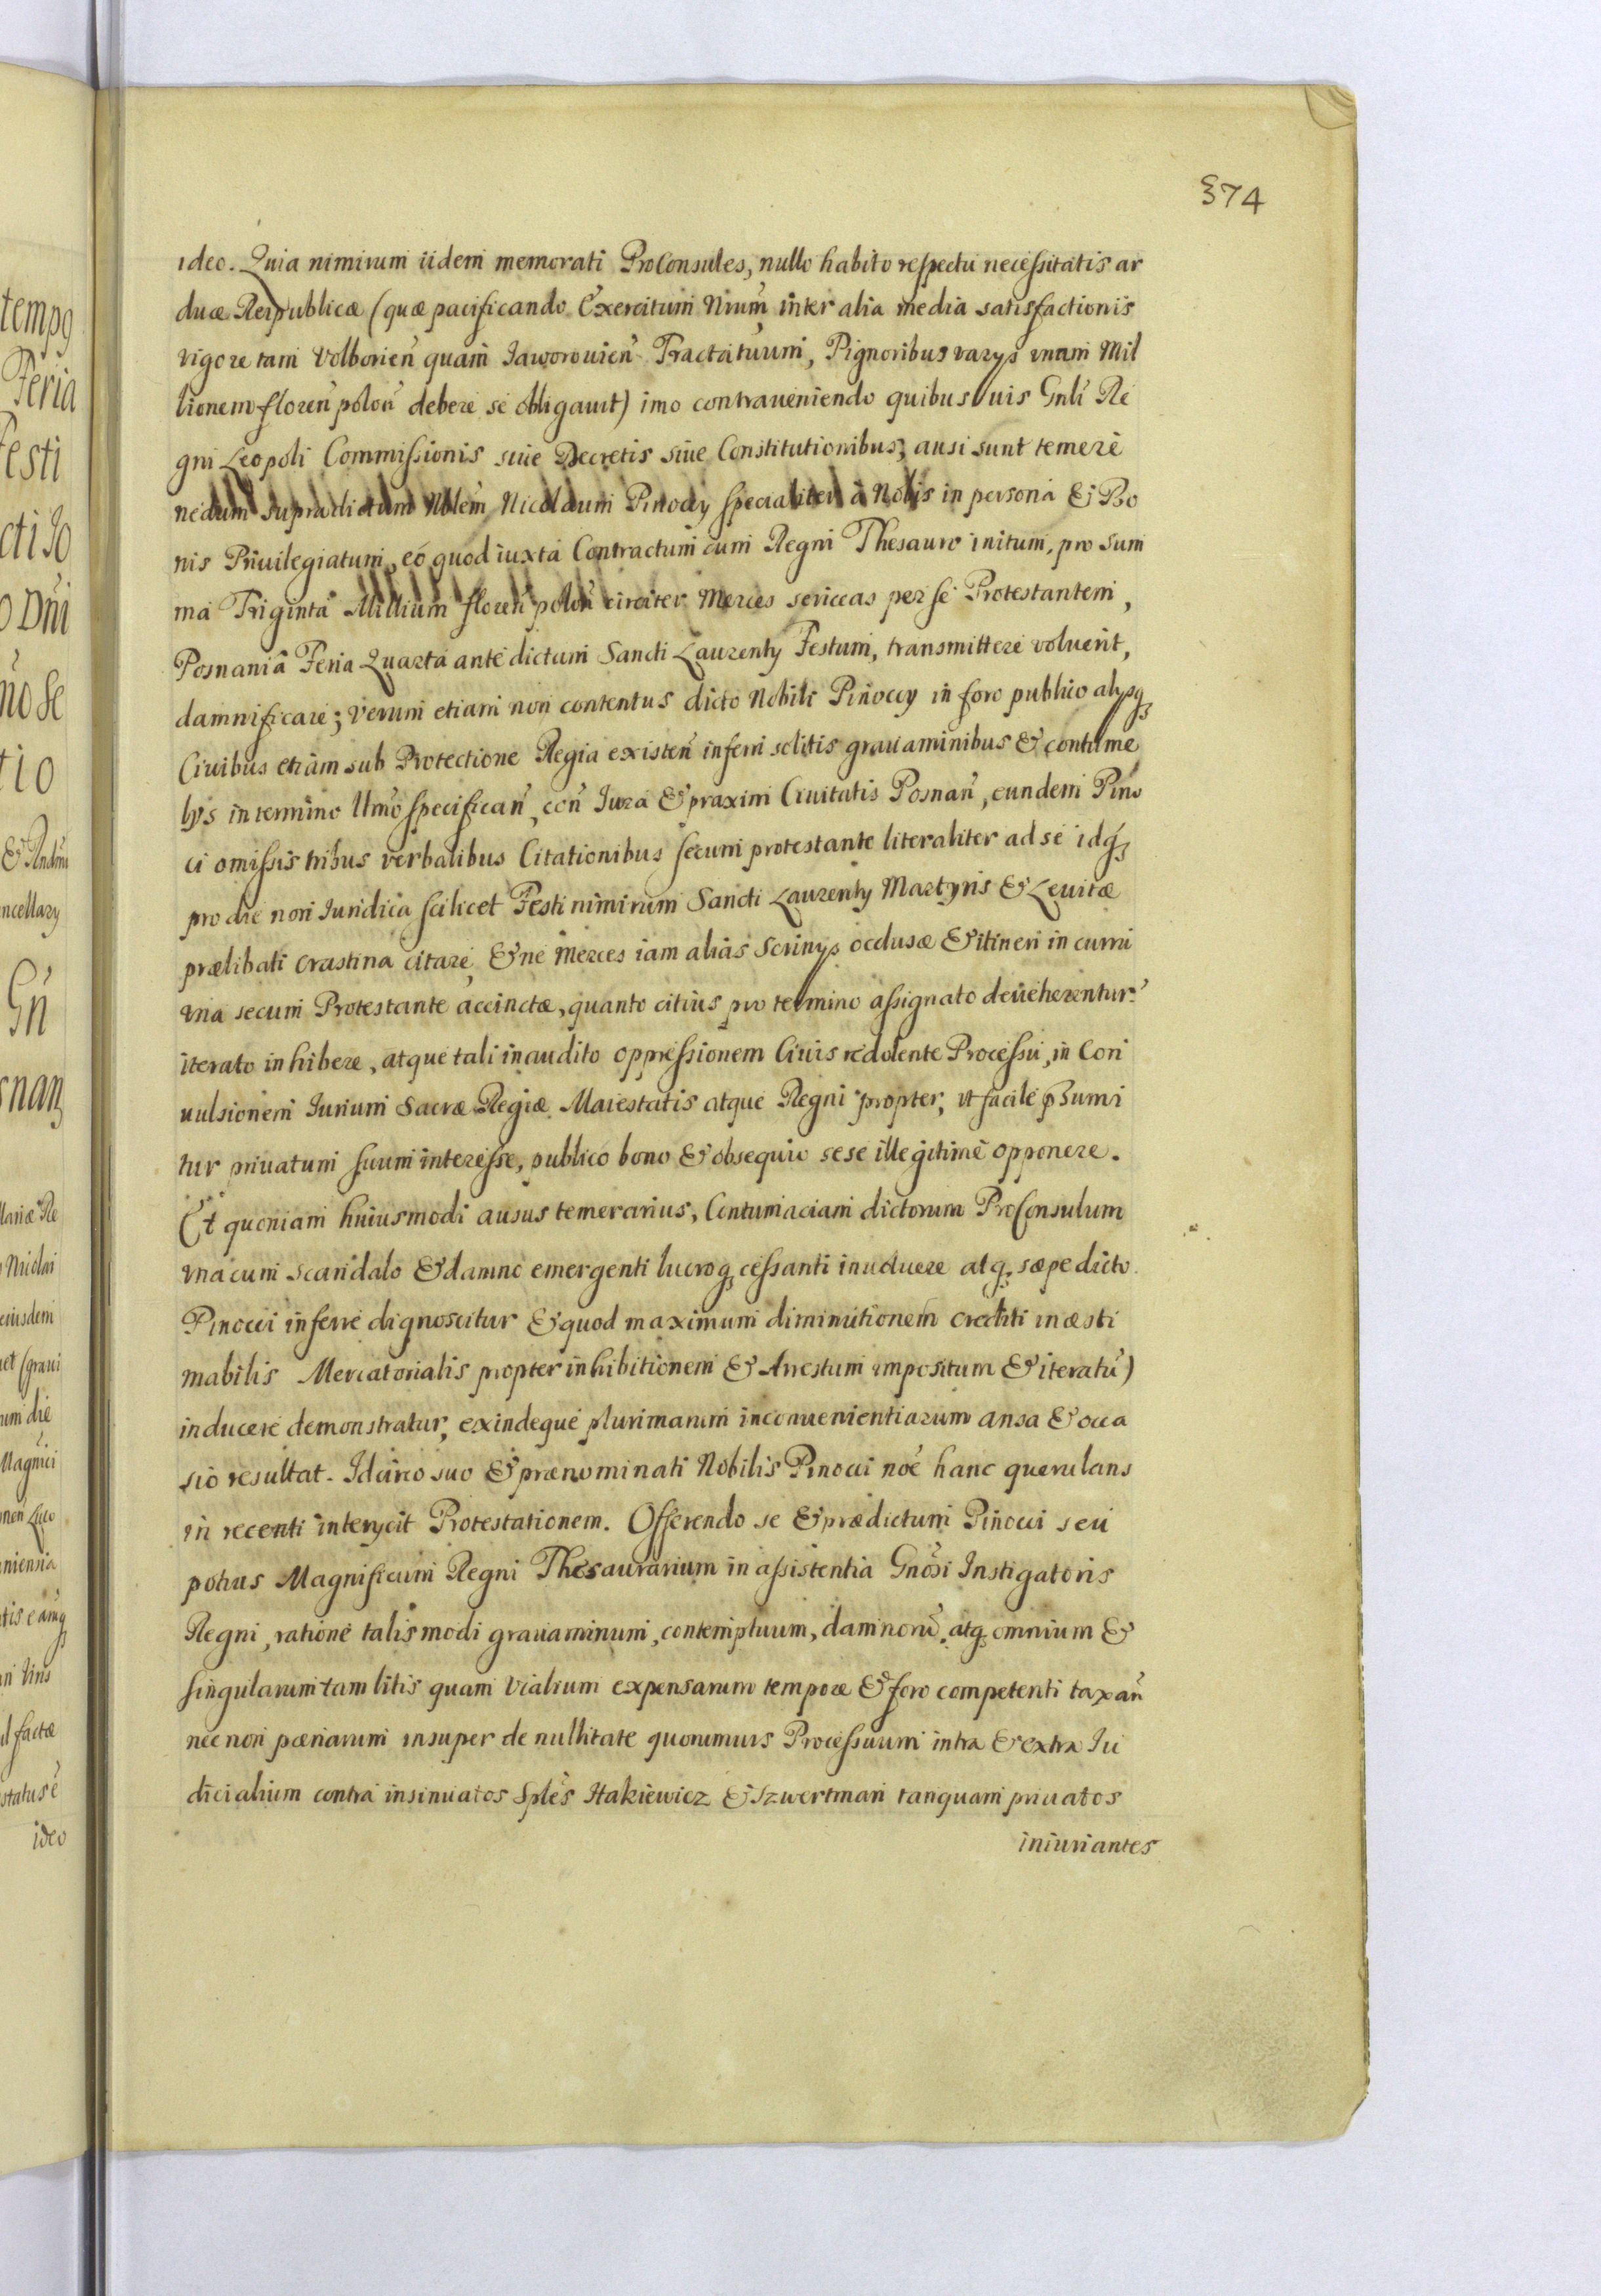 574
ideo. Quia nimirum iidem memorati ProConsules, nullo habito respectu necessitatis ar
duæ Reipublicæ (quæ pacificando Exercitum Nrum̃ inter alia media satisfactionis
vigore tam Volborien̄ quam Jaworouien̄ Tractatuum, Pignoribus varys vnam Mil
lionem floren̄ polon̄ debere se obligauit) imo contraueniendo quibusuis Gnli Re
gni Leopoli Commissionis siue Decretis siue Constitutionibus, ausi sunt temere
nedum supradictum Nblem̄ Nicolaum Pinocy specialiter à Nobis in persona & Bo
nis Priuilegiatum, eò quod iuxta Contractum cum Regni Thesauro initum, pro Sum
ma Triginta Millium floren̄ polon̄ circiter Merces sericeas per se Protestantem,
Posnania Feria Quarta ante dictum Sancti Laurenty Festum, transmittere voluerit,
damnificare; verum etiam non contentus dicto Nobili Pinocy in foro publico alysq
Ciuibus etiam sub Protectione Regia existen̄ inferri solitis grauaminibus & contume
lys in termino Ilmo specifican̄, con̄ Jura & praxim Ciuitatis Posnan̄, eundem Pino
ci omissis tribus verbalibus Citationibus secum protestante literaliter ad se idq
pro die non Juridica scilicet Festi nimirum Sancti Laurenty Martyris & Leuitæ
prælibati crastina citare, & ne Merces iam alias Scrinys occlusæ & itineri in curru
vna secum Protestante accinctæ, quanto citius pro termino assignato deueherentur
iterato inhibere, atque tali inaudito oppressionem Ciuis redolente Processu, in Con
uulsionem Jurium Sacræ Regiæ Maiestatis atque Regni propter, vt facile psumi
tur priuatum suum interesse, publico bono & obsequio sese illegitime opponere.
Et quoniam huiusmodi ausus temerarius, Contumaciam dictorum ProConsulum
vna cum scandalo & damno emergenti lucroq cessanti inuoluere atq. sæpe dicto
Pinocci inferre dignoscitur & quod maximum diminutionem crediti inæsti
mabilis Mercatorialis propter inhibitionem & Arrestum impositum & iteratū)
inducere demonstratur, exindeque plurimarum inconuenientiarum ansa & occa
sio resultat. Idcirco suo & prænominati Nobilis Pinocci noē hanc querulans
in recenti interycit Protestationem. Offerendo se & prædictum Pinocci seu
potius Magnificum Regni Thesaurarium in assistentia Gnosi Instigatoris
Regni, ratione talismodi grauaminum, contemptuum, damnorū, atq omnium &
singularum tam litis quam vialium expensarum tempore & foro competenti taxan̄
nec non pænarum insuper de nullitate quorumuis Processuum intra & extra Ju
dicialium contra insinuatos Sples Itakiewicz & Szwertman tanquam priuatos
iniuriantes
tempq
Feria
Festi
cti Jo
o Dni
no se
tio
& Andm
ncellary
Gn̄
snanz
llariæ Re
Nicolai
eiusdem
et (graui
um die
Magnici
niensia
n Iuris
l factæ
status ē
ideo